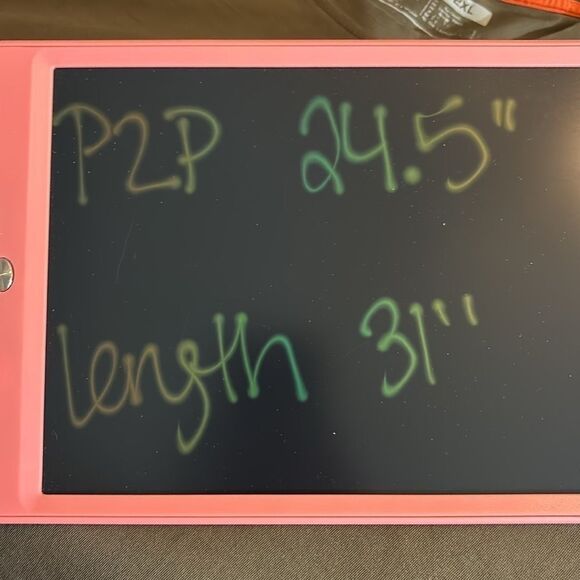 2XL
P2P 24.5"
length 31"